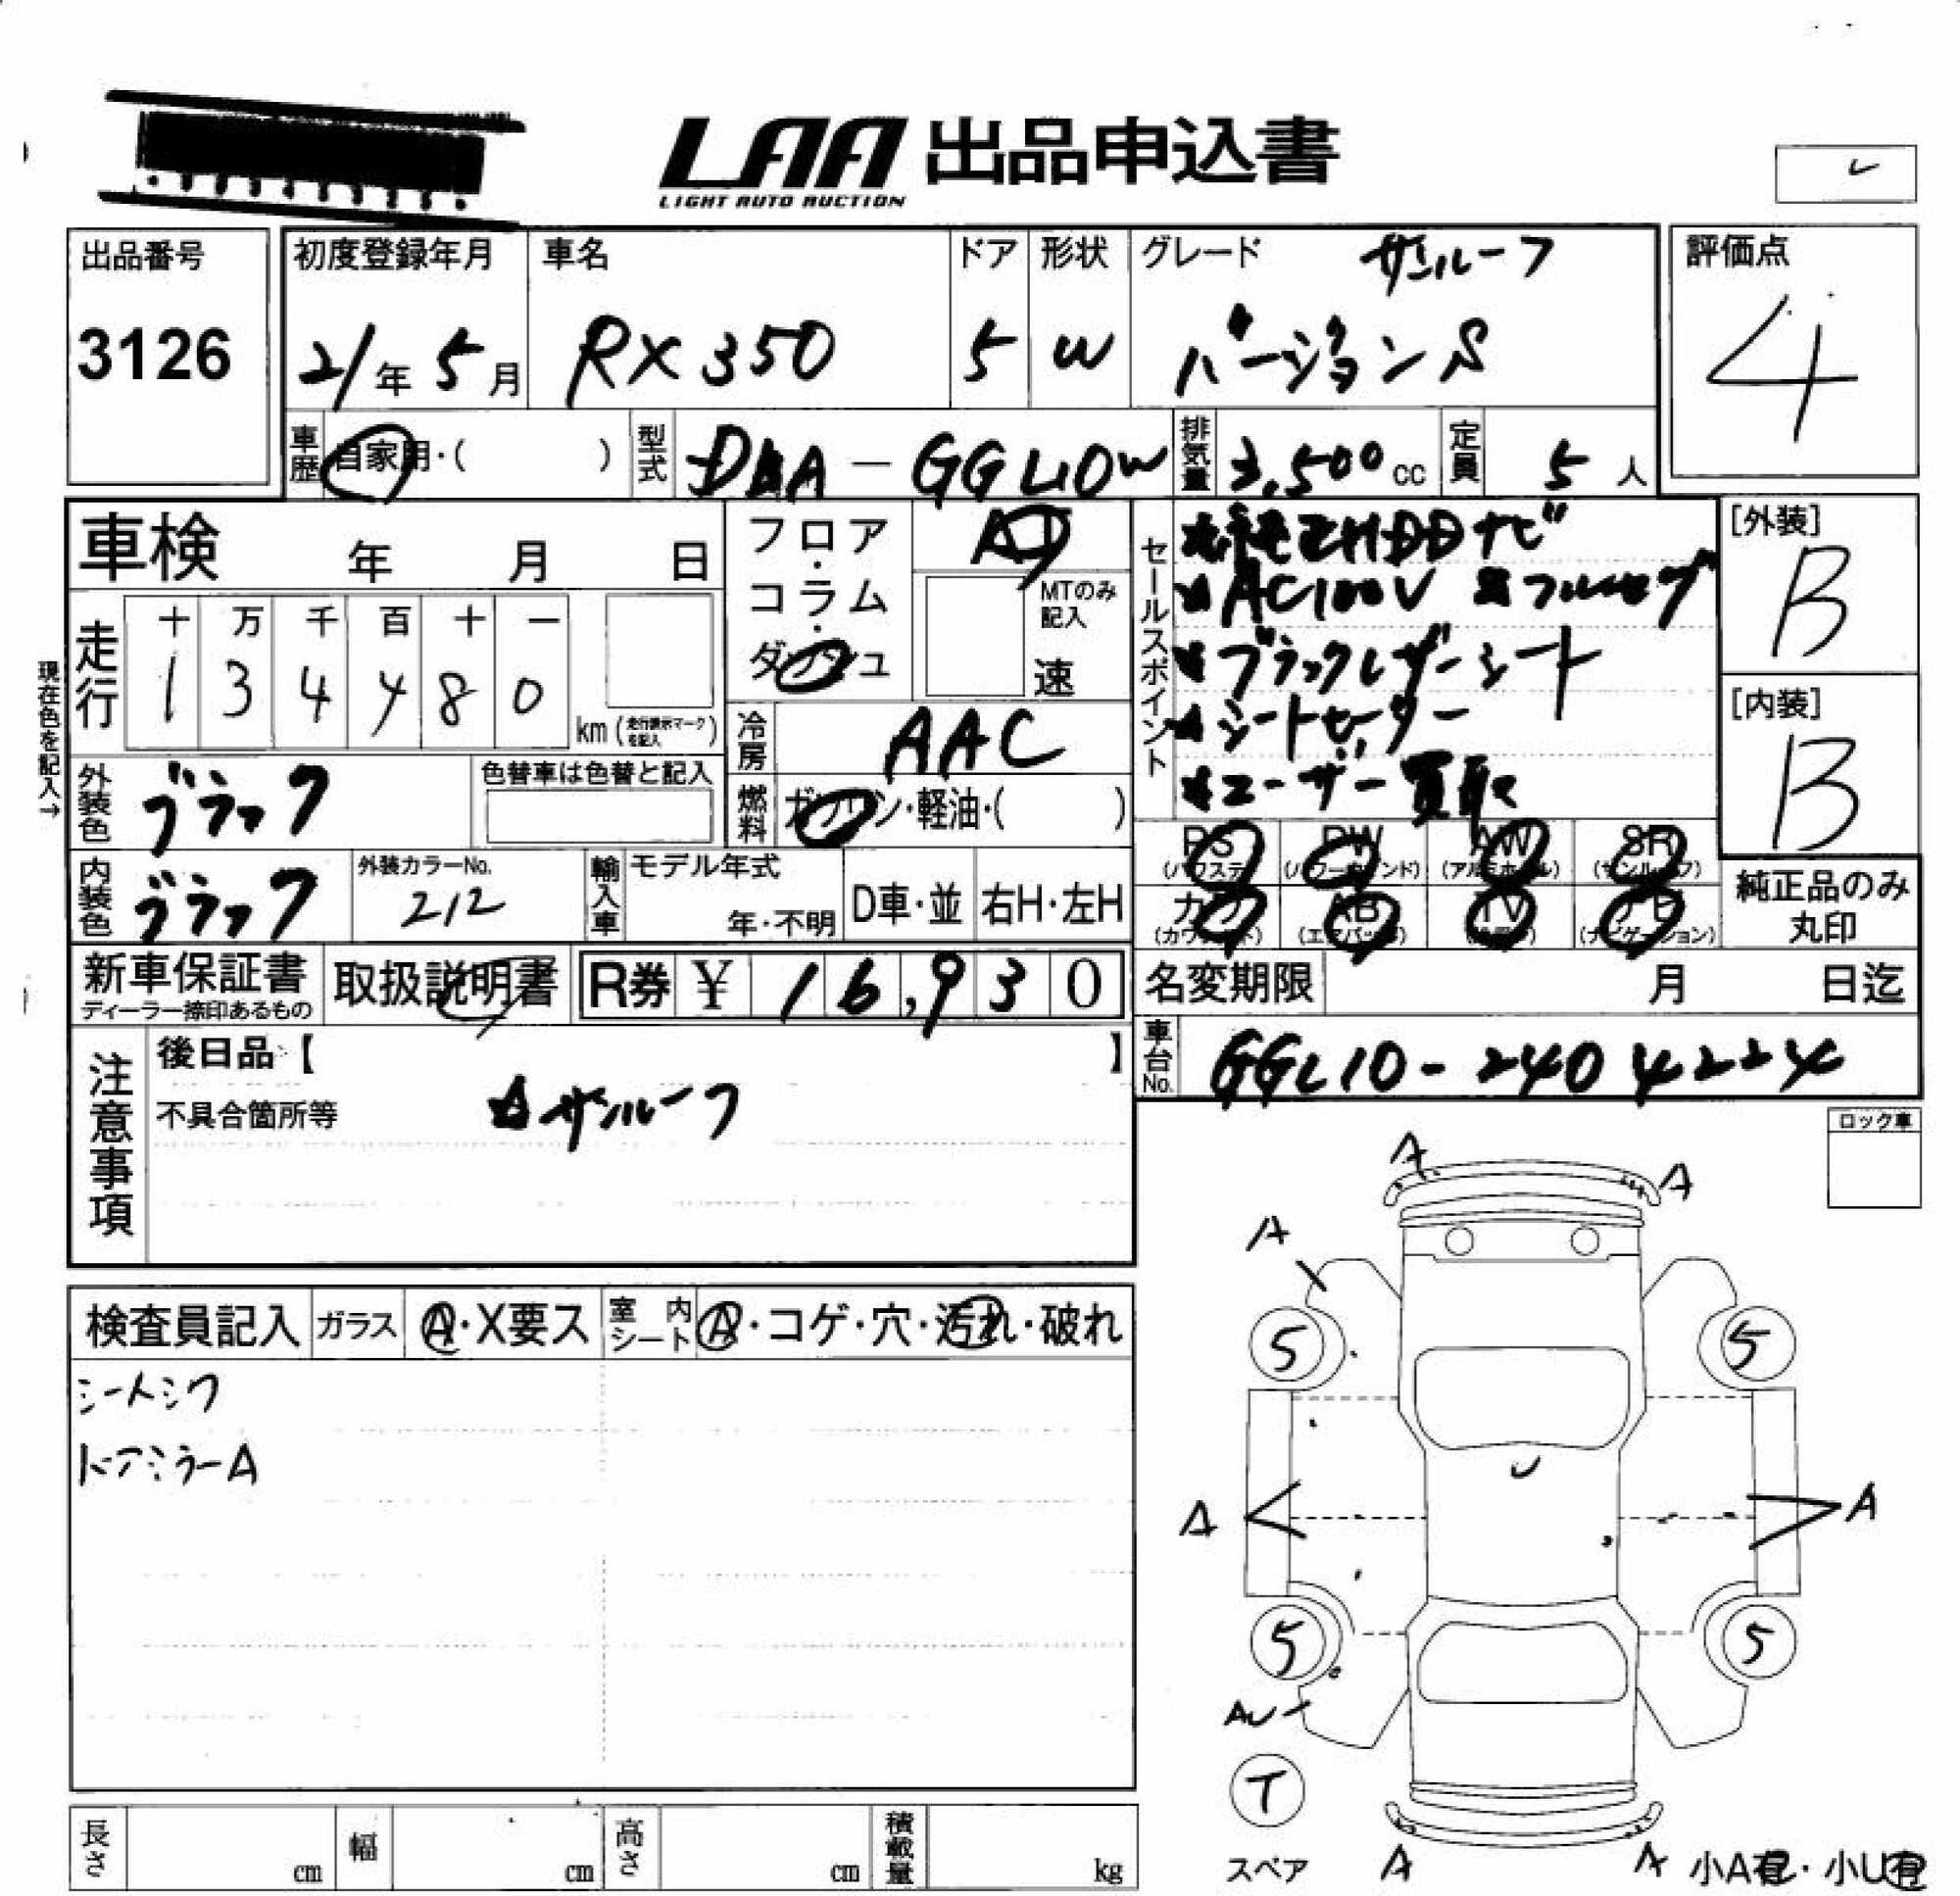 LAA 出品申込書
LIGHT AUTO AUCTION
出品番号
3126
初度登録年月
21年 5月
車名
RX350
ドア
5
形状
W
グレード サンルーフ
バージョンS
評価点
4
車歴 自家用・( )
型式 DAA-GGL10W
排気量 3,500cc
定員 5人
車検 年 月 日
フロア・コラム・ダッシュ
AT
MTのみ記入
速
走行
十 万 千 百 十 一
1 3 4 4 8 0
km(走行表示マークを記入)
現在色を記入→
冷房 AAC
燃料 ガソリン・軽油・( )
外装色 ブラック
色替車は色替と記入
内装色 ブラック
外装カラーNo.
212
輸入車 モデル年式
年・不明
D車・並 右H・左H
セールスポイント
☆純正HDDナビ
☆AC100V ☆フルセグ
☆ブラックレザーシート
☆シートヒーター
☆ユーザー買取
[外装]
B
[内装]
B
PS PW AW SR
(パワステ) (パワーウインド) (アルミホイル) (サンルーフ)
カワ AB TV ナビ
(カワシート) (エアバッグ) (ナビゲーション)
純正品のみ
丸印
新車保証書
ディーラー捺印あるもの
取扱説明書
R券 ¥ 16,930
名変期限 月 日迄
車台No. GGL10-2404224
注意事項
後日品【 】
不具合箇所等 ☆サンルーフ
ロック車
検査員記入 ガラス A・X要ス 室内シート A・コゲ・穴・汚れ・破れ
シートシワ
ドアミラーA
A
A
A
5
5
U
A
A
5
5
AU
T
スペア
A
A
小A有・小U有
長さ cm 幅 cm 高さ cm 積載量 kg